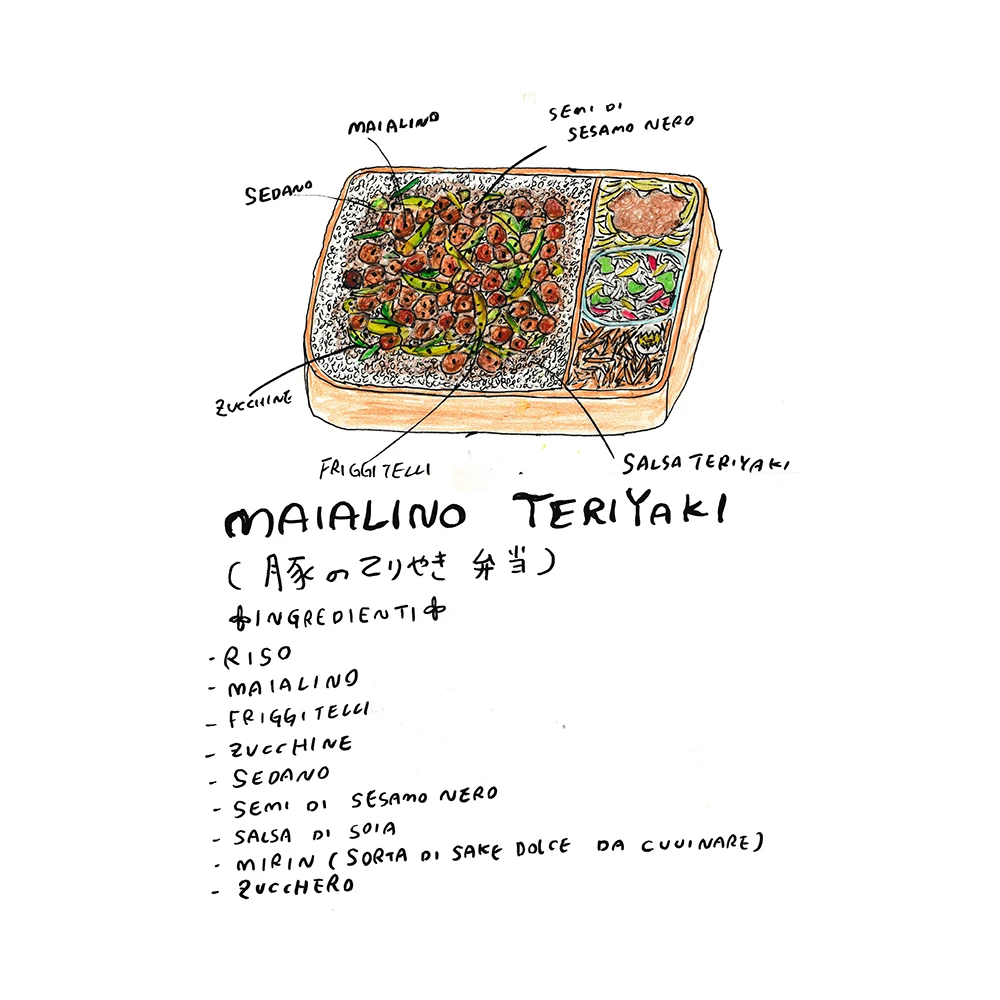 MAIALINO
SEMI DI
SESAMO NERO
SEDANO
ZUCCHINE
FRIGGITELLI
SALSA TERIYAKI
MAIALINO TERIYAKI
(豚のてりやき 弁当)
INGREDIENTI
- RISO
- MAIALINO
- FRIGGITELLI
- ZUCCHINE
- SEDANO
- SEMI DI SESAMO NERO
- SALSA DI SOIA
- MIRIN (SORTA DI SAKE DOLCE DA CUUINARE)
- ZUCCHERO